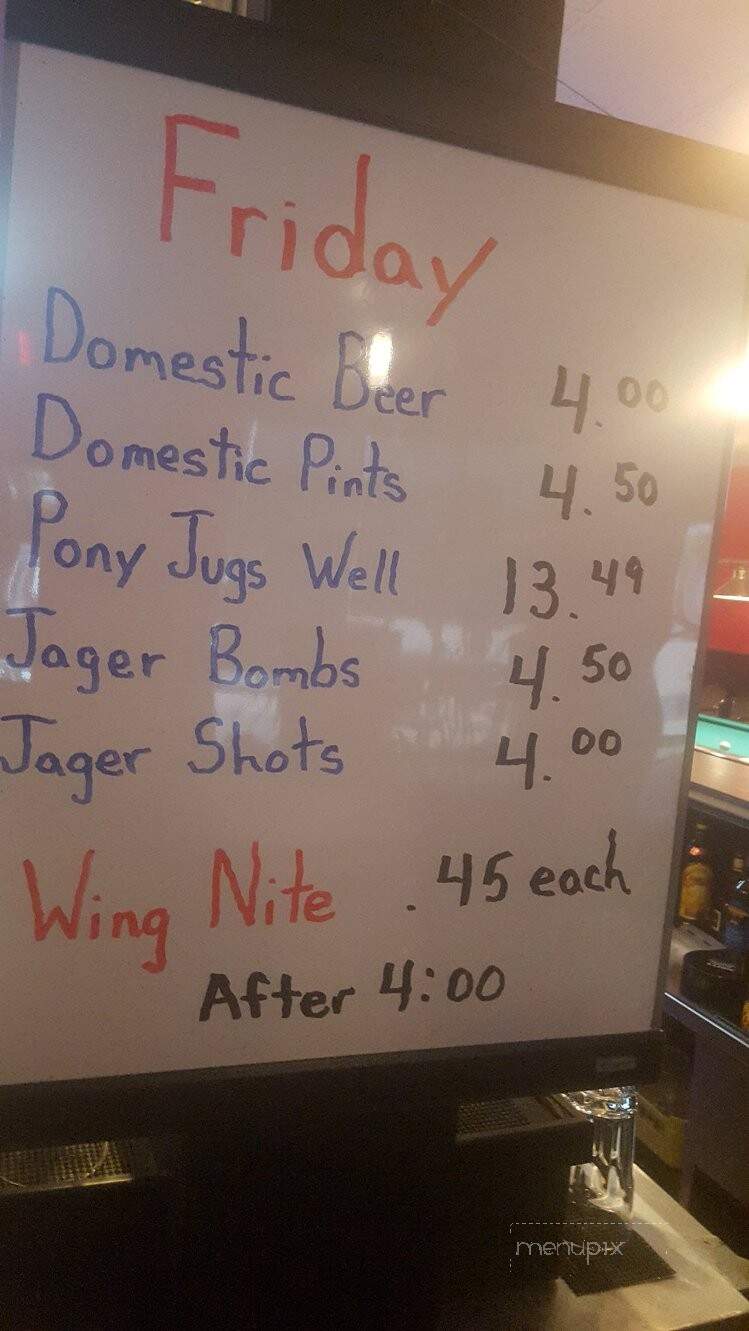 Friday
Domestic Beer 4.00
Domestic Pints 4.50
Pony Jugs Well 13.49
Jager Bombs 4.50
Jager Shots 4.00
Wing Nite .45 each
After 4:00
menupix